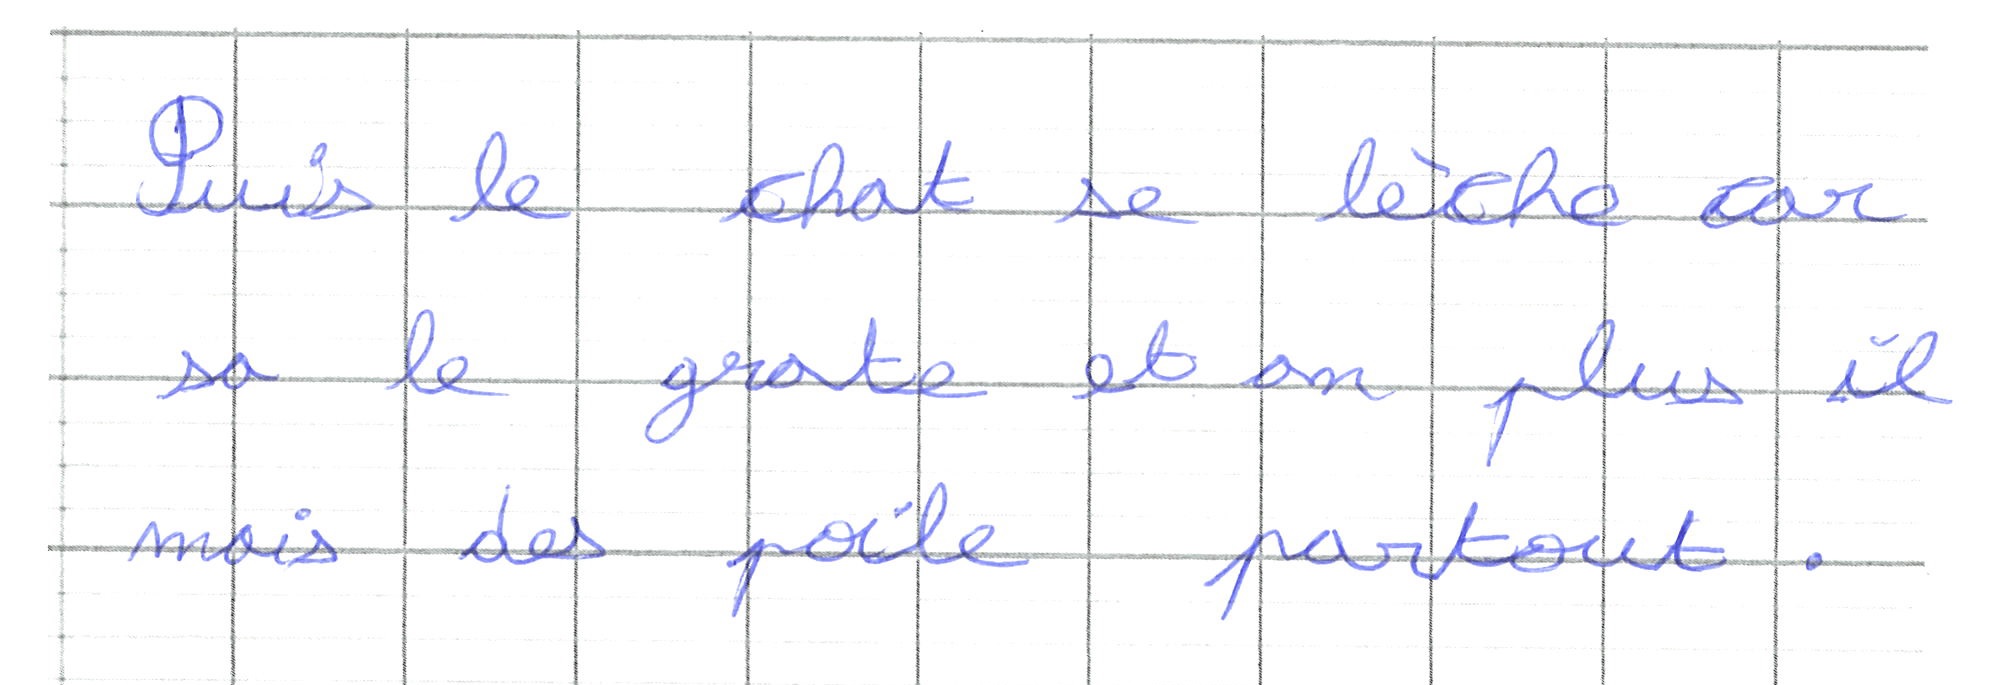 Puis le chat se lèche car
sa le grate et on plus il
mais des poile partout.